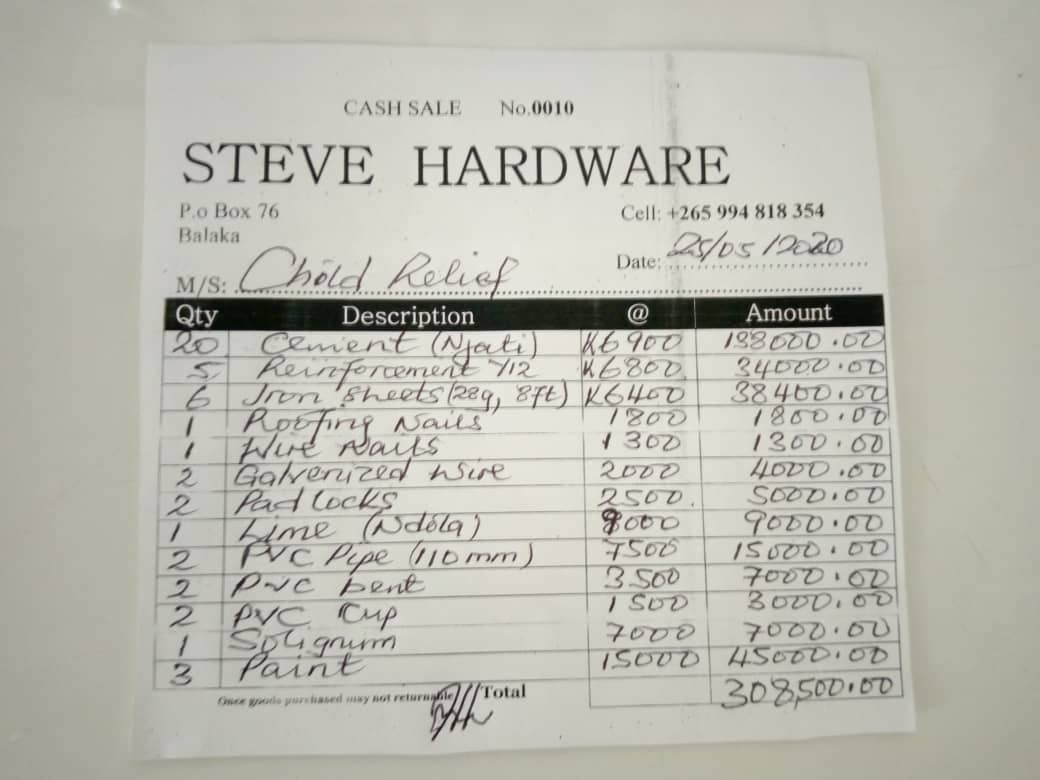 CASH SALE No.0010
STEVE HARDWARE
P.o Box 76 Cell: +265 994 818 354
Balaka
Date: 25/05/2020
M/S: Child Relief
Qty Description @ Amount
20 Cement (Njati) K6900 138000.00
5 Reinforcement Y12 K6800 34000.00
6 Iron Sheets (28g, 8ft) K6400 38400.00
1 Roofing Nails 1800 1800.00
1 Wire Nails 1300 1300.00
2 Galvenized Wire 2000 4000.00
2 Pad locks 2500 5000.00
1 Lime (Ndola) 9000 9000.00
2 PVC Pipe (110mm) 7500 15000.00
2 PVC bent 3500 7000.00
2 PVC Cup 1500 3000.00
1 Solignum 7000 7000.00
3 Paint 15000 45000.00
Once goods purchased may not returnable Total 308,500.00